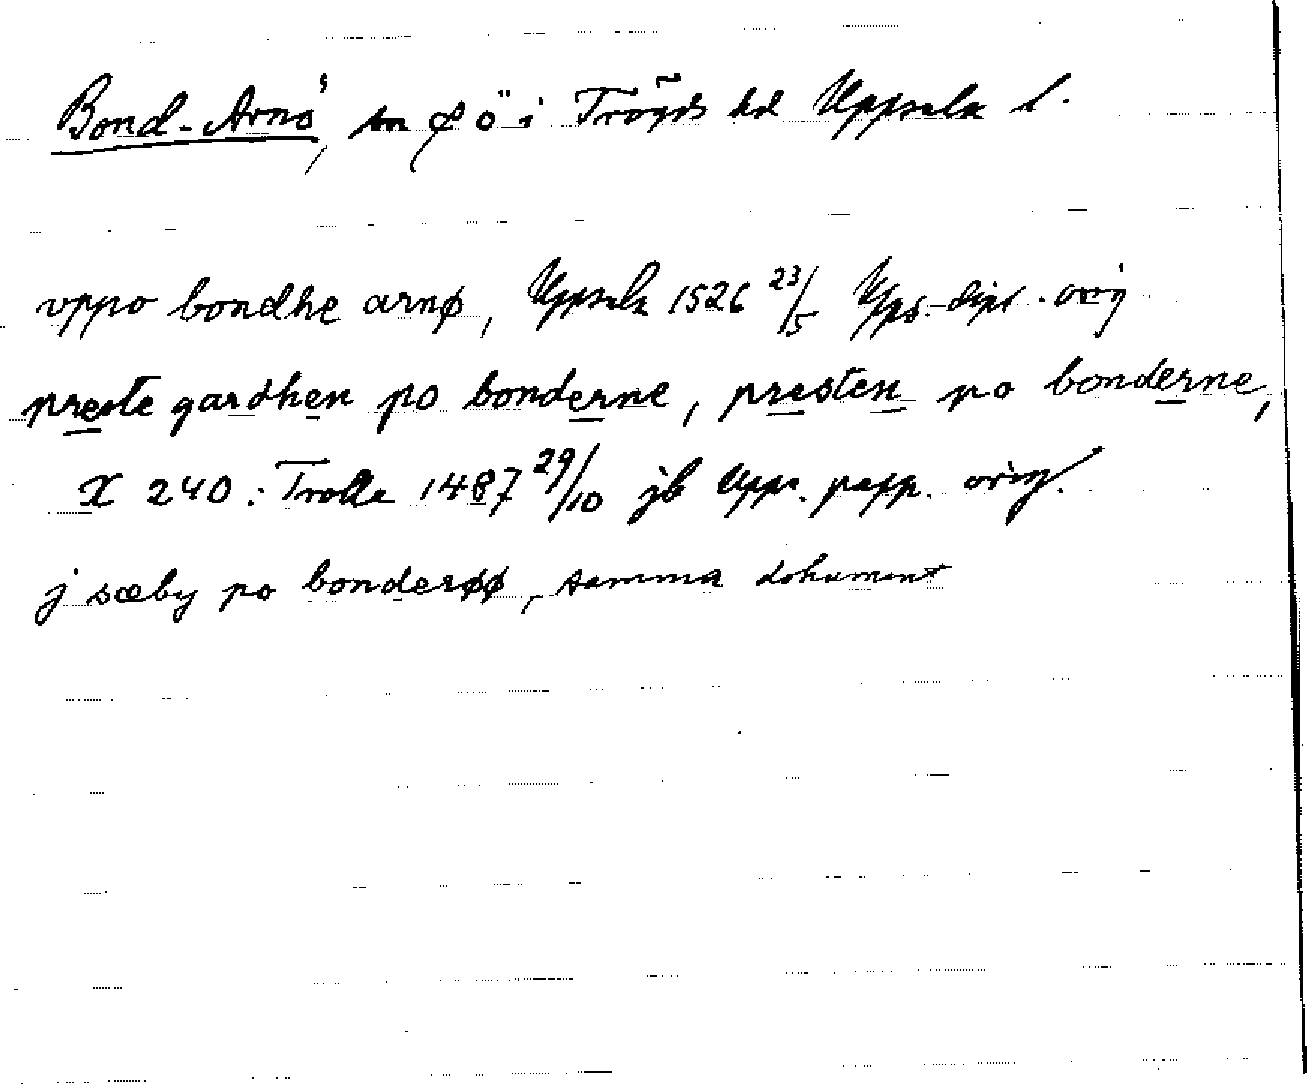 Bond-Arnö, sn o ö i Trögds hd Uppsala l.
vppo bondhe arnø, Uppsala 1526 23/5 Upps.-dipl. orig
preste gardhen po bonderne, presten po bonderne,
X 240: Trolle 1487 29/10 jb Upps. papp. orig.
j sæby po bonderøø, samma dokument